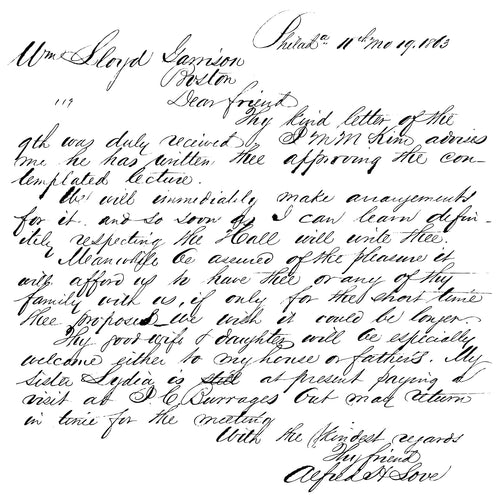 Philada 11th mo 19. 1863
Wm Lloyd Garrison
Boston
Dear friend
Thy kind letter of the
9th was duly received J M M Kim advises
me he has written thee approving the con-
templated lecture.
We will immediatly make arrangements
for it. and so soon as I can learn defin-
itely respecting the Hall will write thee.
Meanwhile be assured of the pleasure it
will afford us to have thee or any of thy
family with us, if only for the short time
thee proposes_We wish it could be longer.
Thy good wife & daughter will be especially
welcome either to my house or father's. My
sister Lydia is still at present paying a
visit at J C Burrages but may return
in time for the meeting
With the kindest regards
Thy friend
Alfred H Love